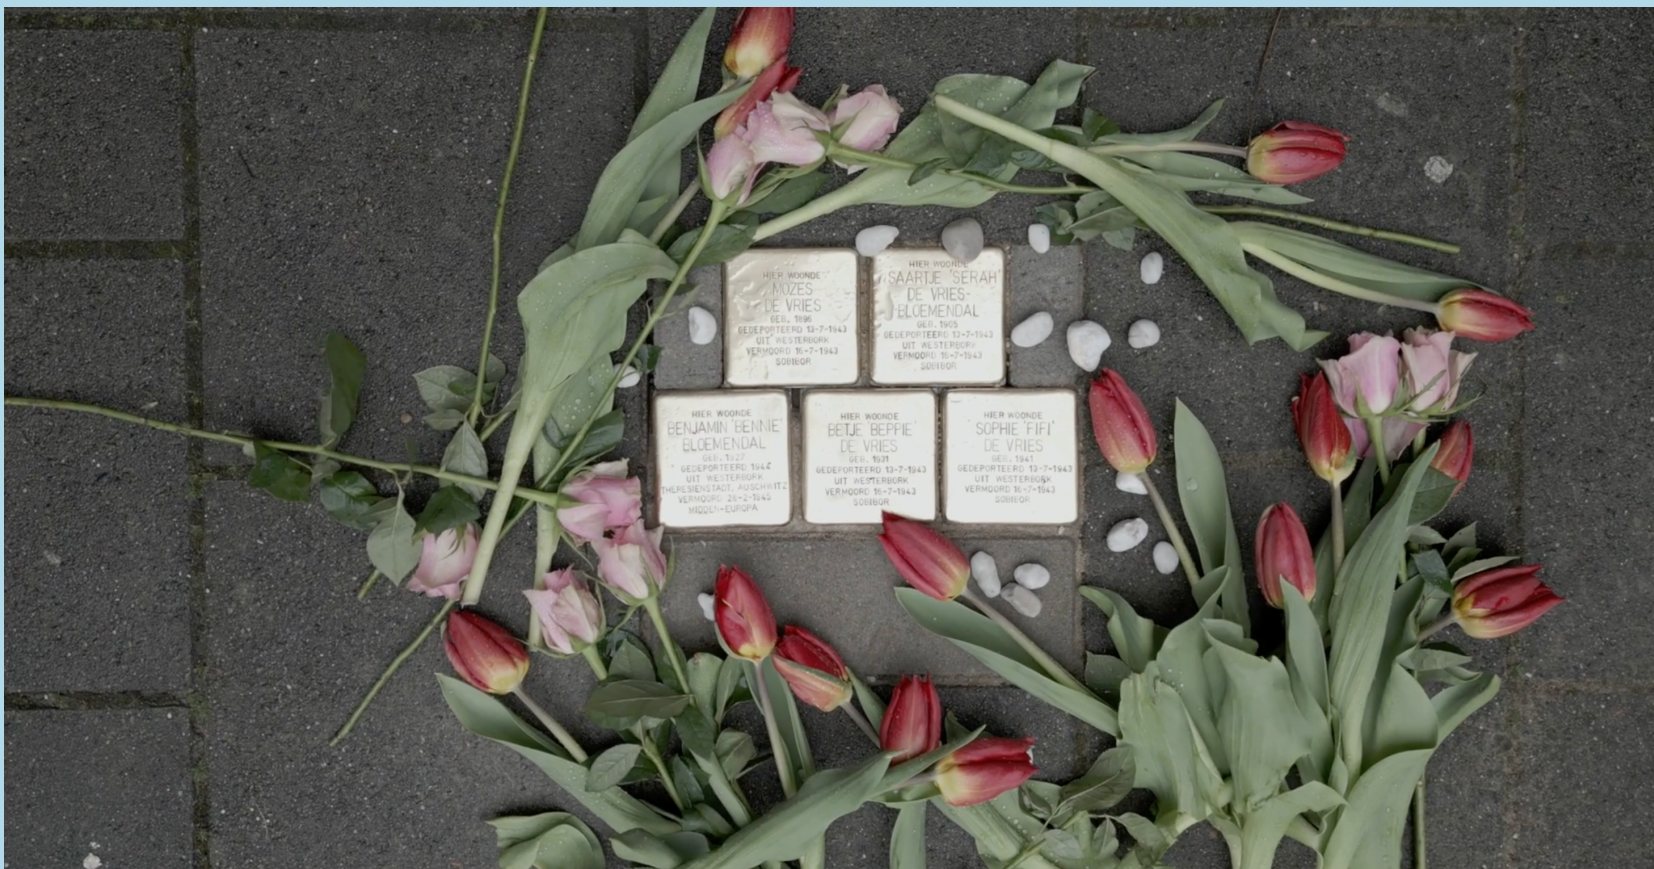 HIER WOONDE
MOZES
DE VRIES
GEB. 1896
GEDEPORTEERD 13-7-1943
UIT WESTERBORK
VERMOORD 16-7-1943
SOBIBOR
HIER WOONDE
SAARTJE 'SERAH'
DE VRIES-
BLOEMENDAL
GEB. 1905
GEDEPORTEERD 13-7-1943
UIT WESTERBORK
VERMOORD 16-7-1943
SOBIBOR
HIER WOONDE
BENJAMIN 'BENNIE'
BLOEMENDAL
GEB. 1927
GEDEPORTEERD 1944
UIT WESTERBORK
THERESIENSTADT, AUSCHWITZ
VERMOORD 26-2-1945
MIDDEN-EUROPA
HIER WOONDE
BETJE 'BEPPIE'
DE VRIES
GEB. 1931
GEDEPORTEERD 13-7-1943
UIT WESTERBORK
VERMOORD 16-7-1943
SOBIBOR
HIER WOONDE
SOPHIE 'FIFI'
DE VRIES
GEB. 1941
GEDEPORTEERD 13-7-1943
UIT WESTERBORK
VERMOORD 16-7-1943
SOBIBOR